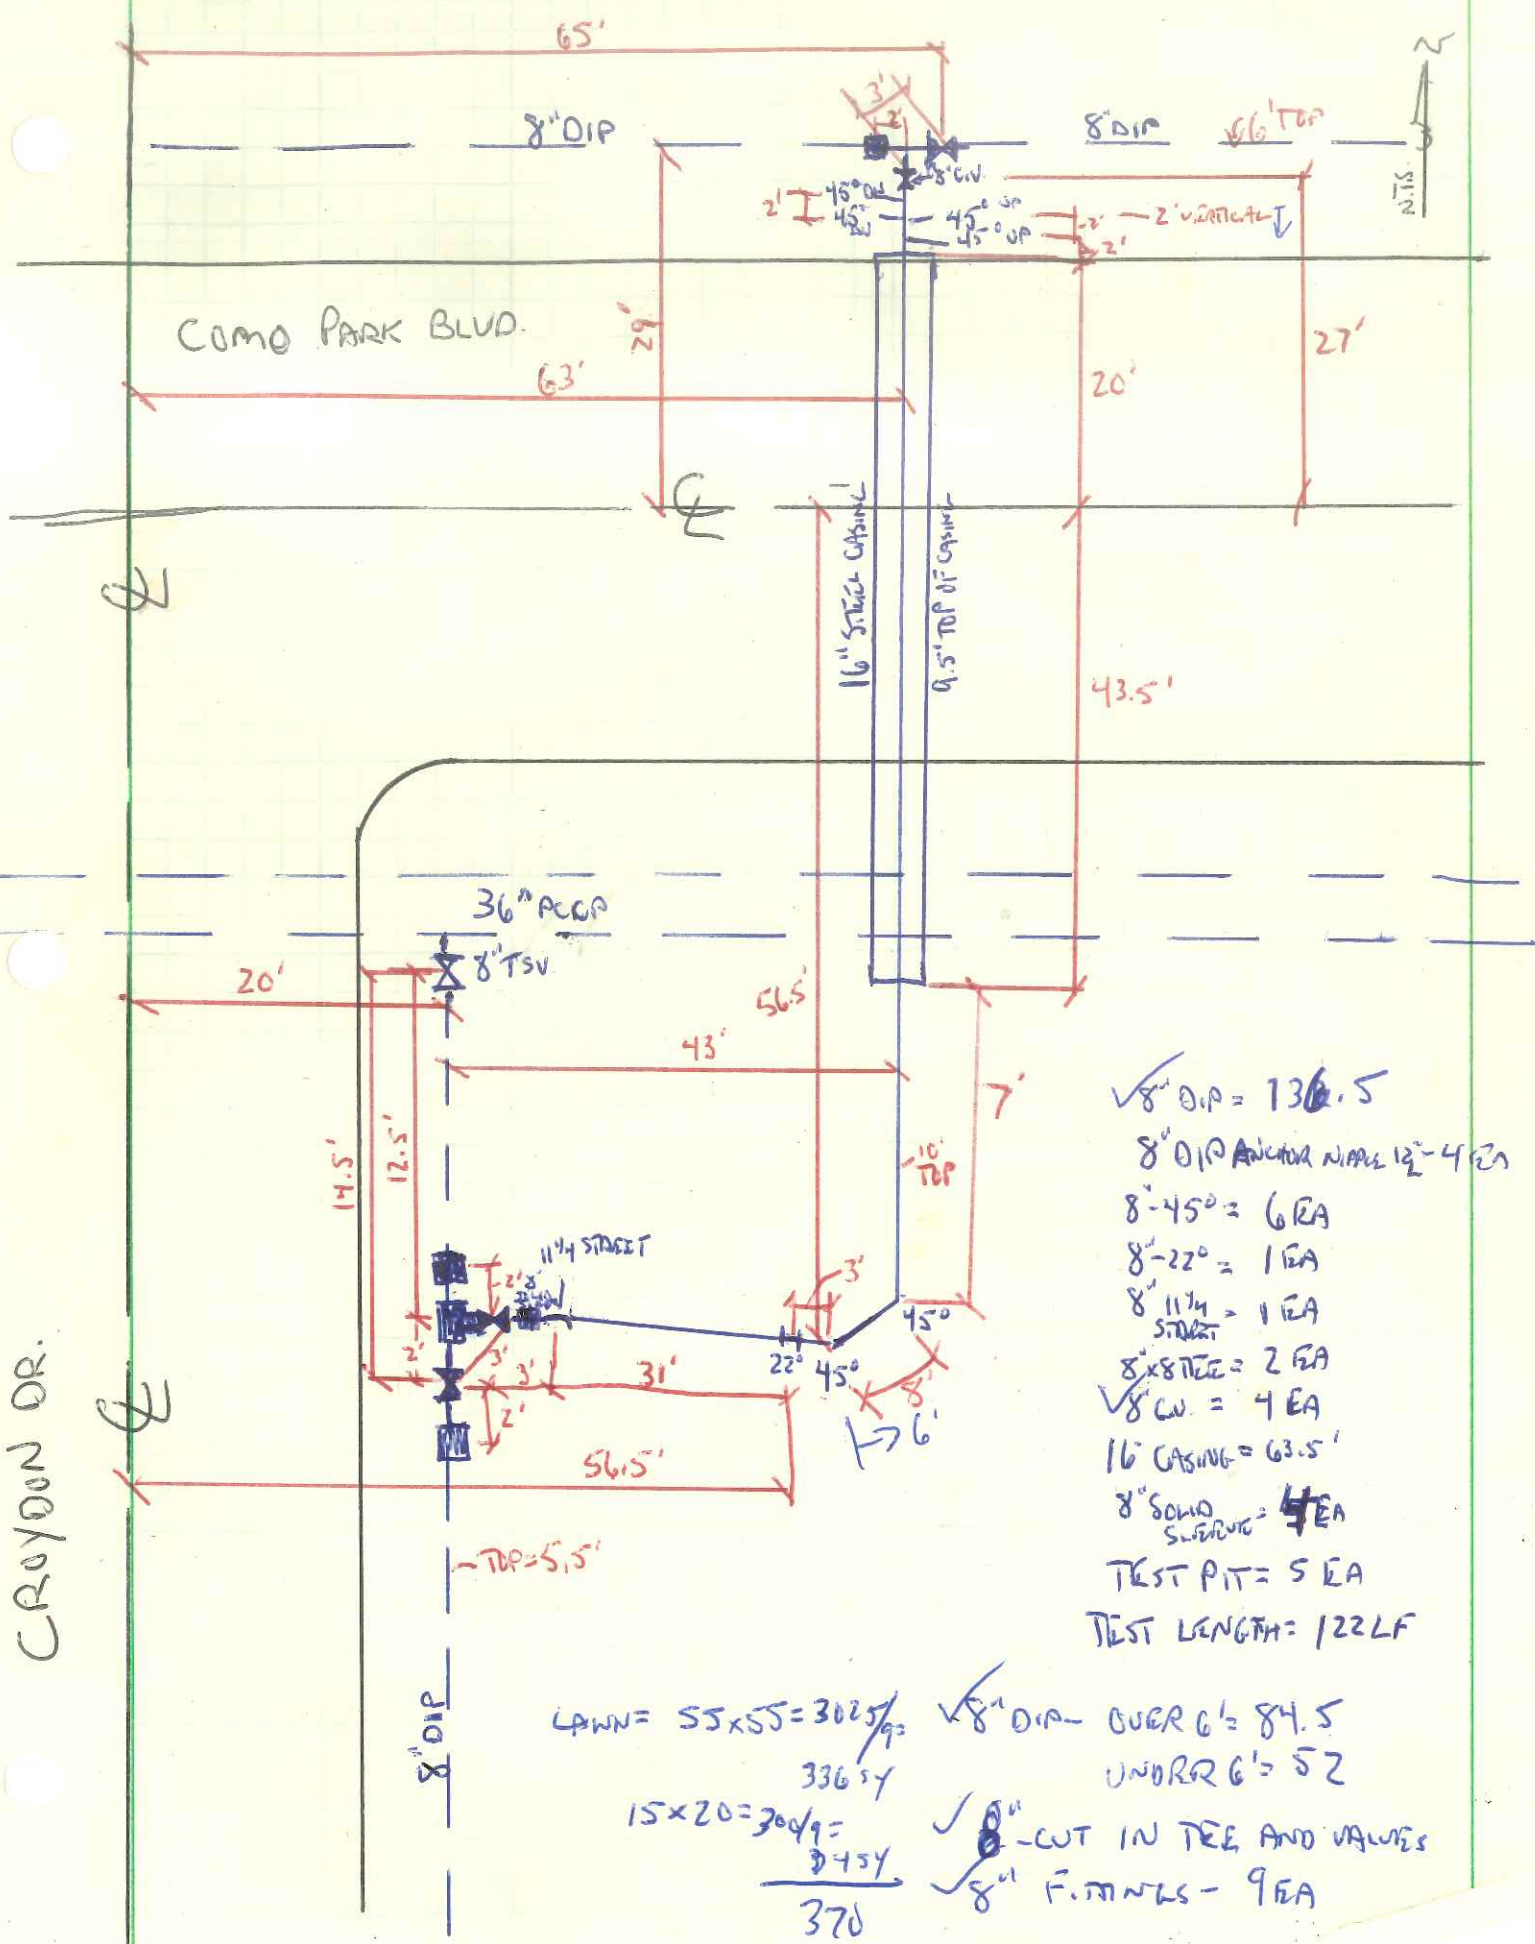 65'
N
3'
2'
8" DIP
8" DIP
6' TOP
N.T.S.
8" G.V.
45° DN
45°
2'
45° UP
45° UP
2'
2' VERTICAL
2'
COMO PARK BLVD.
29'
27'
63'
20'
℄
16" STEEL CASING
9.5' TOP OF CASING
℄
43.5'
36" PCCP
8" TSV
20'
56.5'
43'
7'
14.5'
12.5'
10' TOP
11 1/4 STREET
2'
8"
3'
45°
22°
45°
2'
3'
3'
31'
8'
2'
6'
56.5'
℄
CROYDON DR.
TOP = 5.5'
8" DIP
8" DIP = 136.5
8" DIP ANCHOR NIPPLE 12" - 4 EA
8"-45° = 6 EA
8"-22° = 1 EA
8" 11 1/4 STREET = 1 EA
8"x8 TEE = 2 EA
8" G.V. = 4 EA
16" CASING = 63.5'
8" SOLID SLEEVE = 4 EA
TEST PIT = 5 EA
TEST LENGTH = 122 LF
LAWN = 55x55 = 3025/9=
336 SY
15x20 = 300/9=
34 SY
370
8" DIP - OVER 6' = 84.5
UNDER 6' = 52
8" - CUT IN TEE AND VALVES
8" FITTINGS - 9 EA